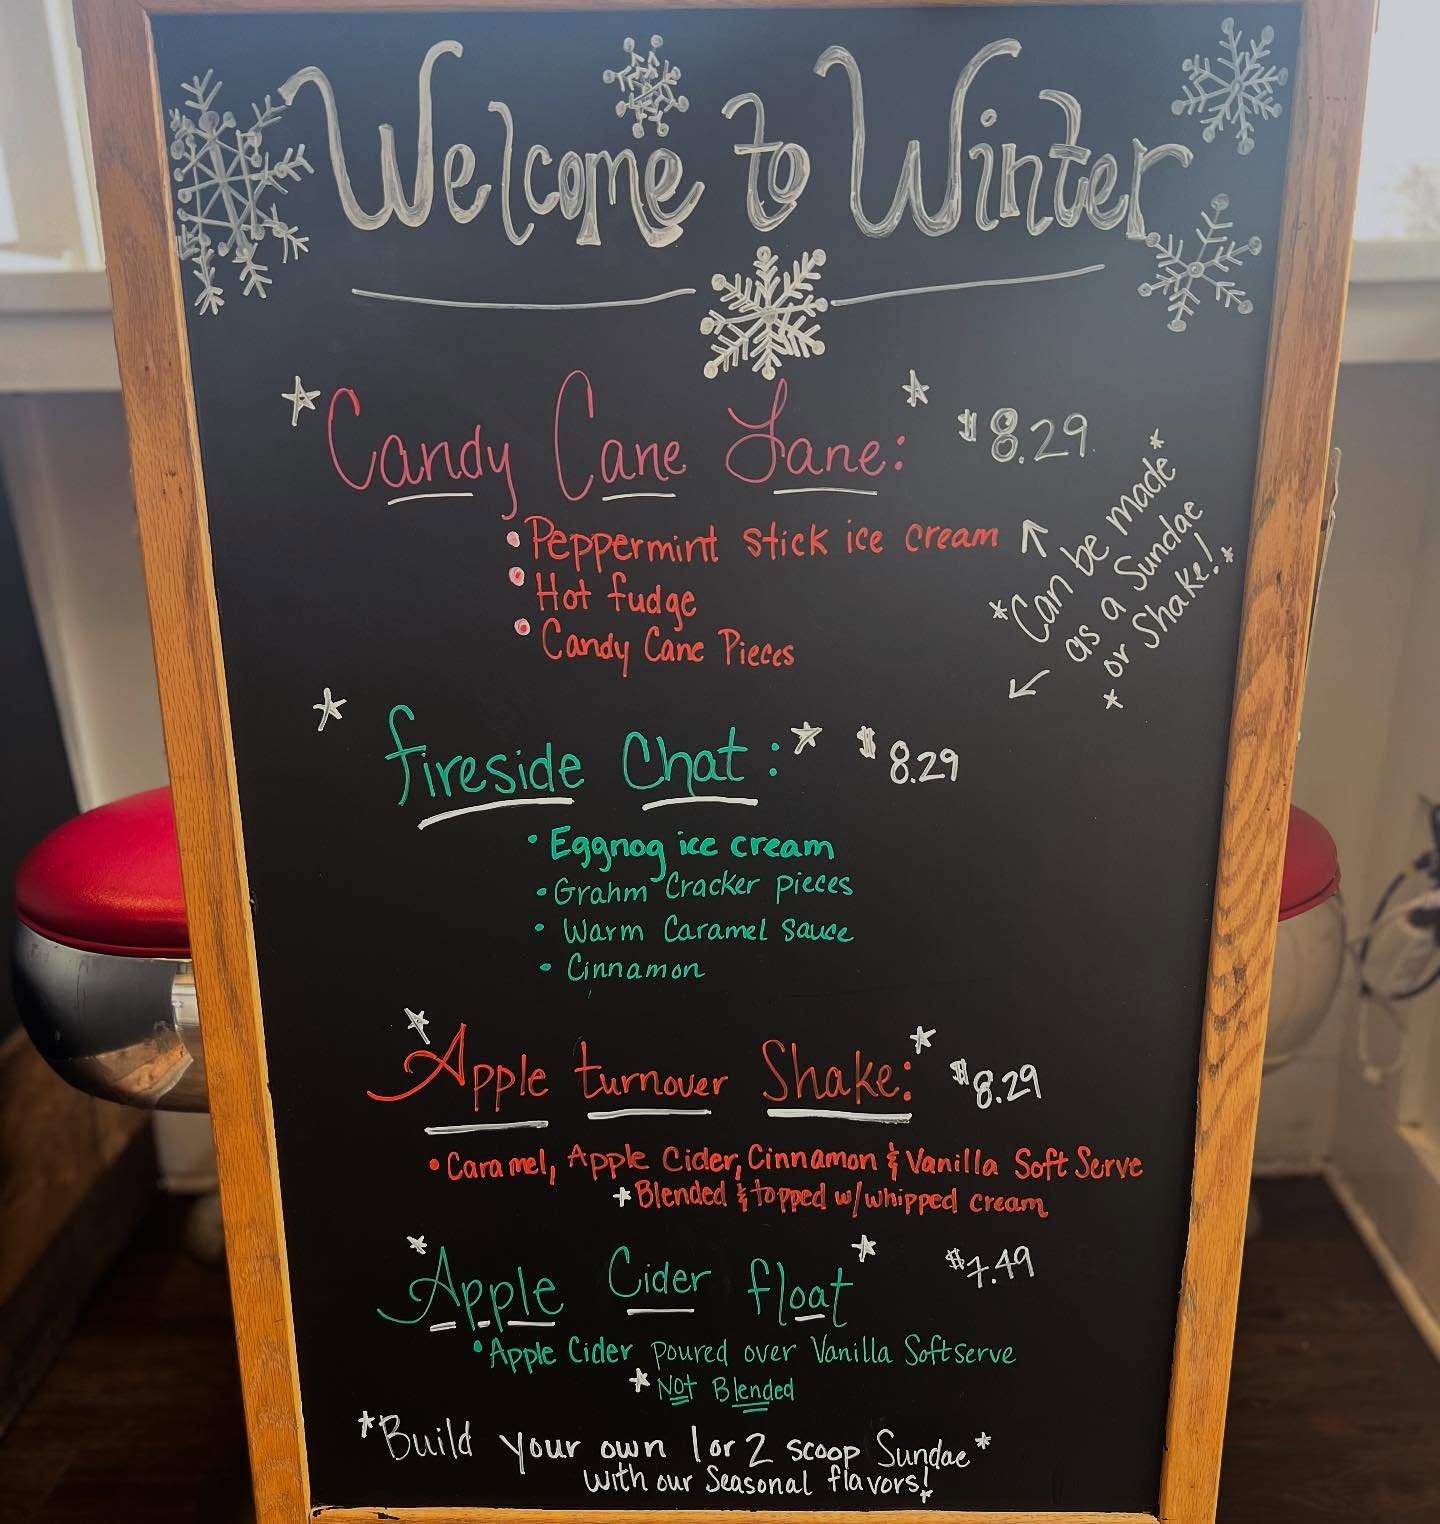 Welcome to Winter
*Candy Cane Lane:* $8.29
• Peppermint stick ice cream
• Hot fudge
• Candy Cane Pieces
*Can be made*
as a Sundae
*or Shake!*
*fireside Chat:* $8.29
• Eggnog ice cream
• Grahm Cracker pieces
• Warm Caramel sauce
• Cinnamon
*Apple turnover Shake:* $8.29
• Caramel, Apple Cider, Cinnamon & Vanilla Soft Serve
*Blended & topped w/whipped cream
*Apple Cider float* $7.49
• Apple Cider poured over Vanilla Softserve
*Not Blended
*Build your own 1 or 2 scoop Sundae*
with our Seasonal flavors!*